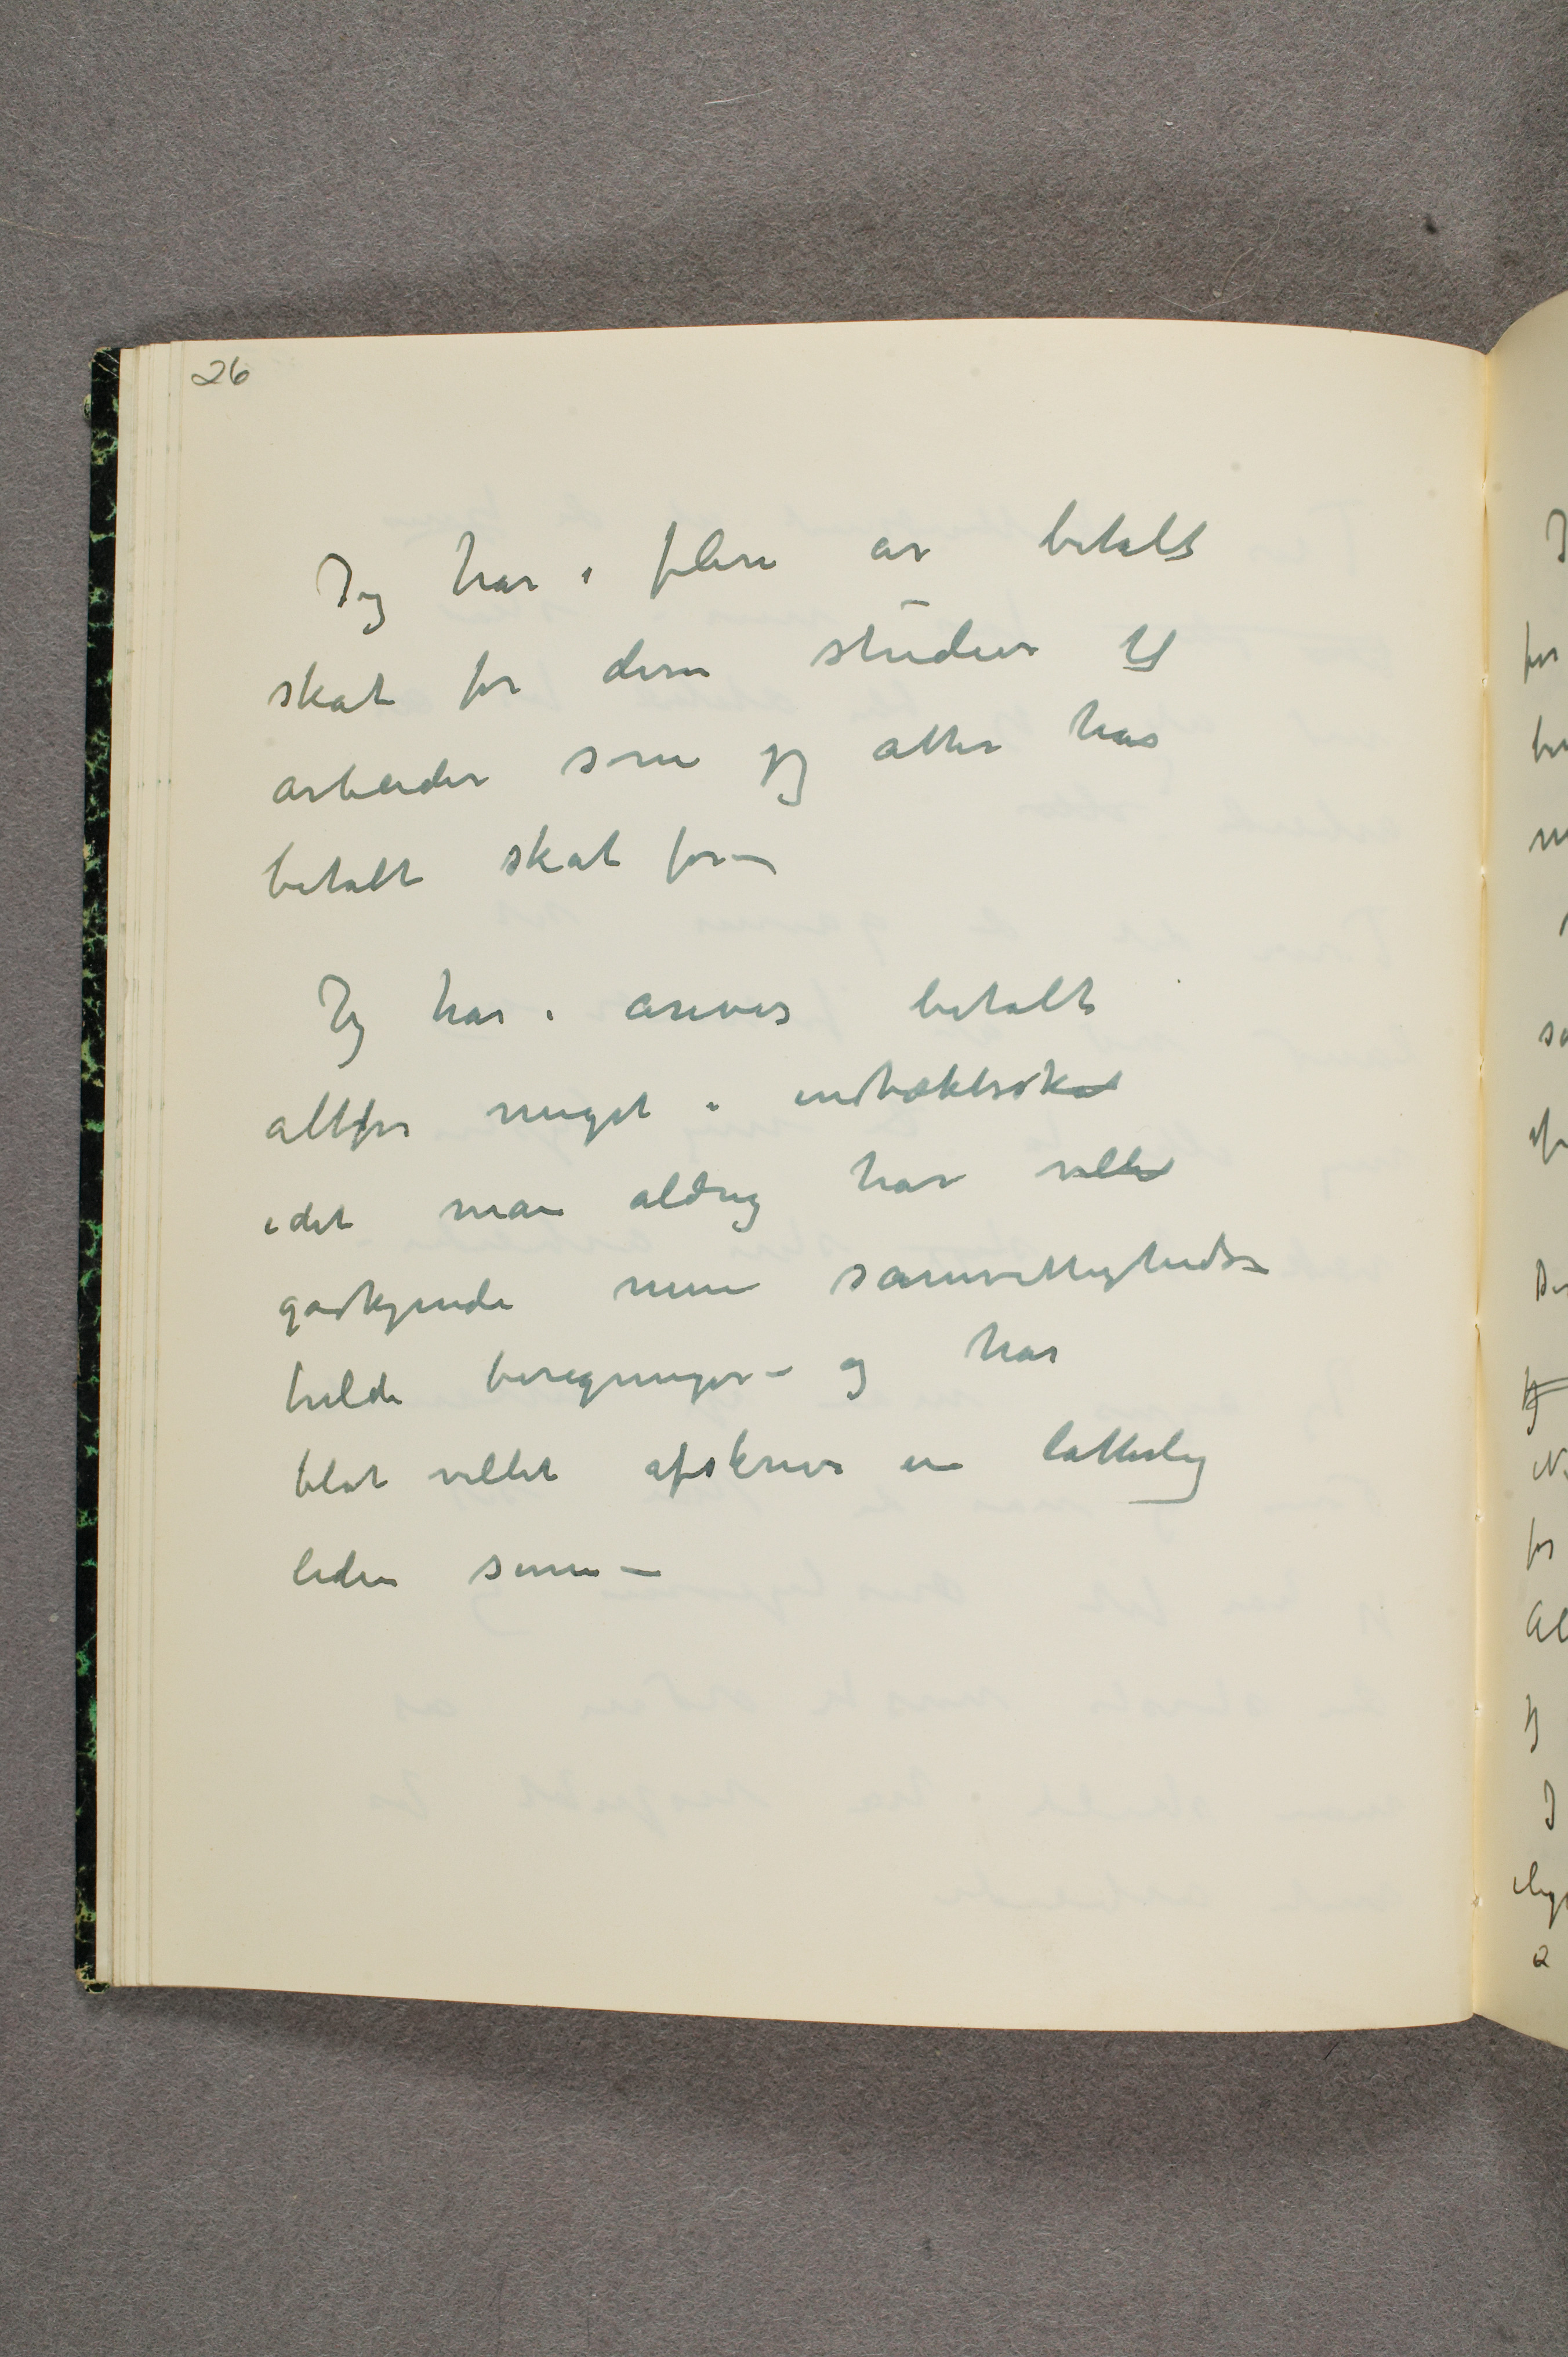 26
Jeg har i flere år betalt
skat for disse studier til
arbeider som jeg atter har
betalt skat for –
Jeg har i årevis betalt
altfor meget i indtæktsskat
idet man aldrig har villet
godkjende mine samvittigheds-
fulde beregninger – og har
blot villet afskrive en latterlig
liden sum –